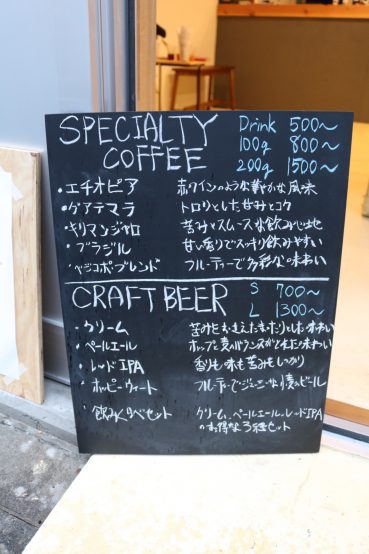 SPECIALTY
COFFEE
Drink 500～
100g 800～
200g 1500～
・エチオピア 赤ワインのような華やかな風味
・グアテマラ トロリとした甘みとコク
・キリマンジャロ 苦みとスムースな飲み心地
・ブラジル 甘い香りでスッキリ飲みやすい
・ベジコポブレンド フルーティーで多彩な味わい
CRAFT BEER
S 700～
L 1300～
・クリーム 苦みをおさえたまったりとした味わい
・ペールエール ホップと麦のバランスがとれた味わい
・レッドIPA 香りも味も苦みもしっかり
・ホッピーウィート フルーティーでジューシーな麦のビール
・飲みくらべセット クリーム、ペールエール、レッドIPA
のお得な3種セット